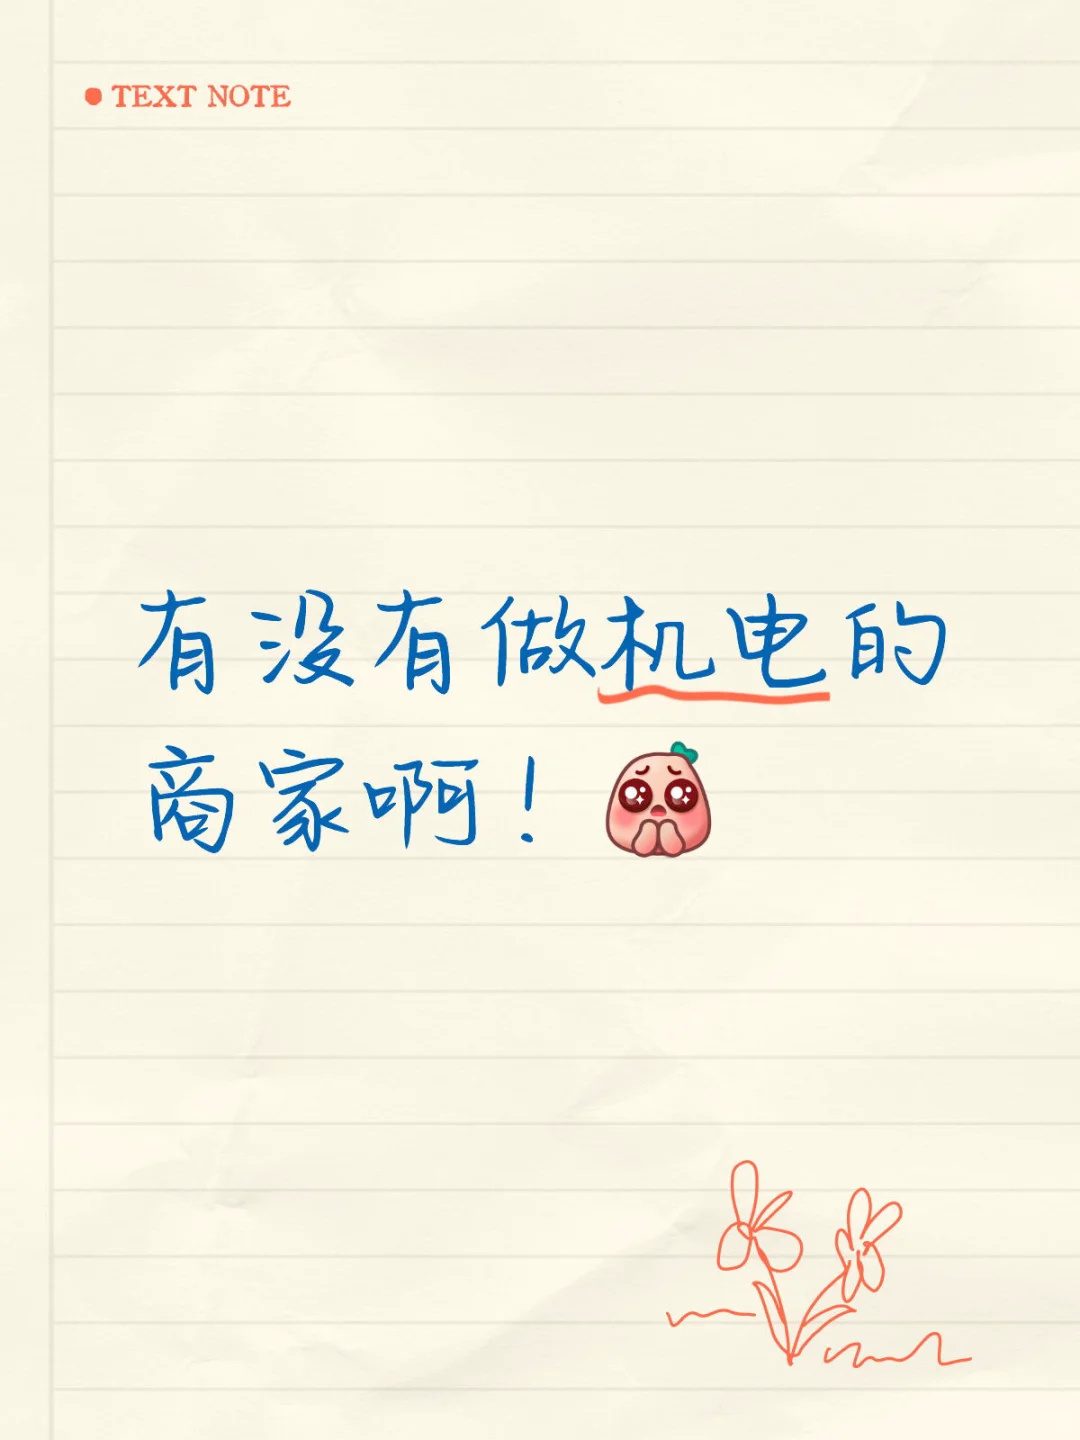 TEXT NOTE
有没有做机电的
商家啊！